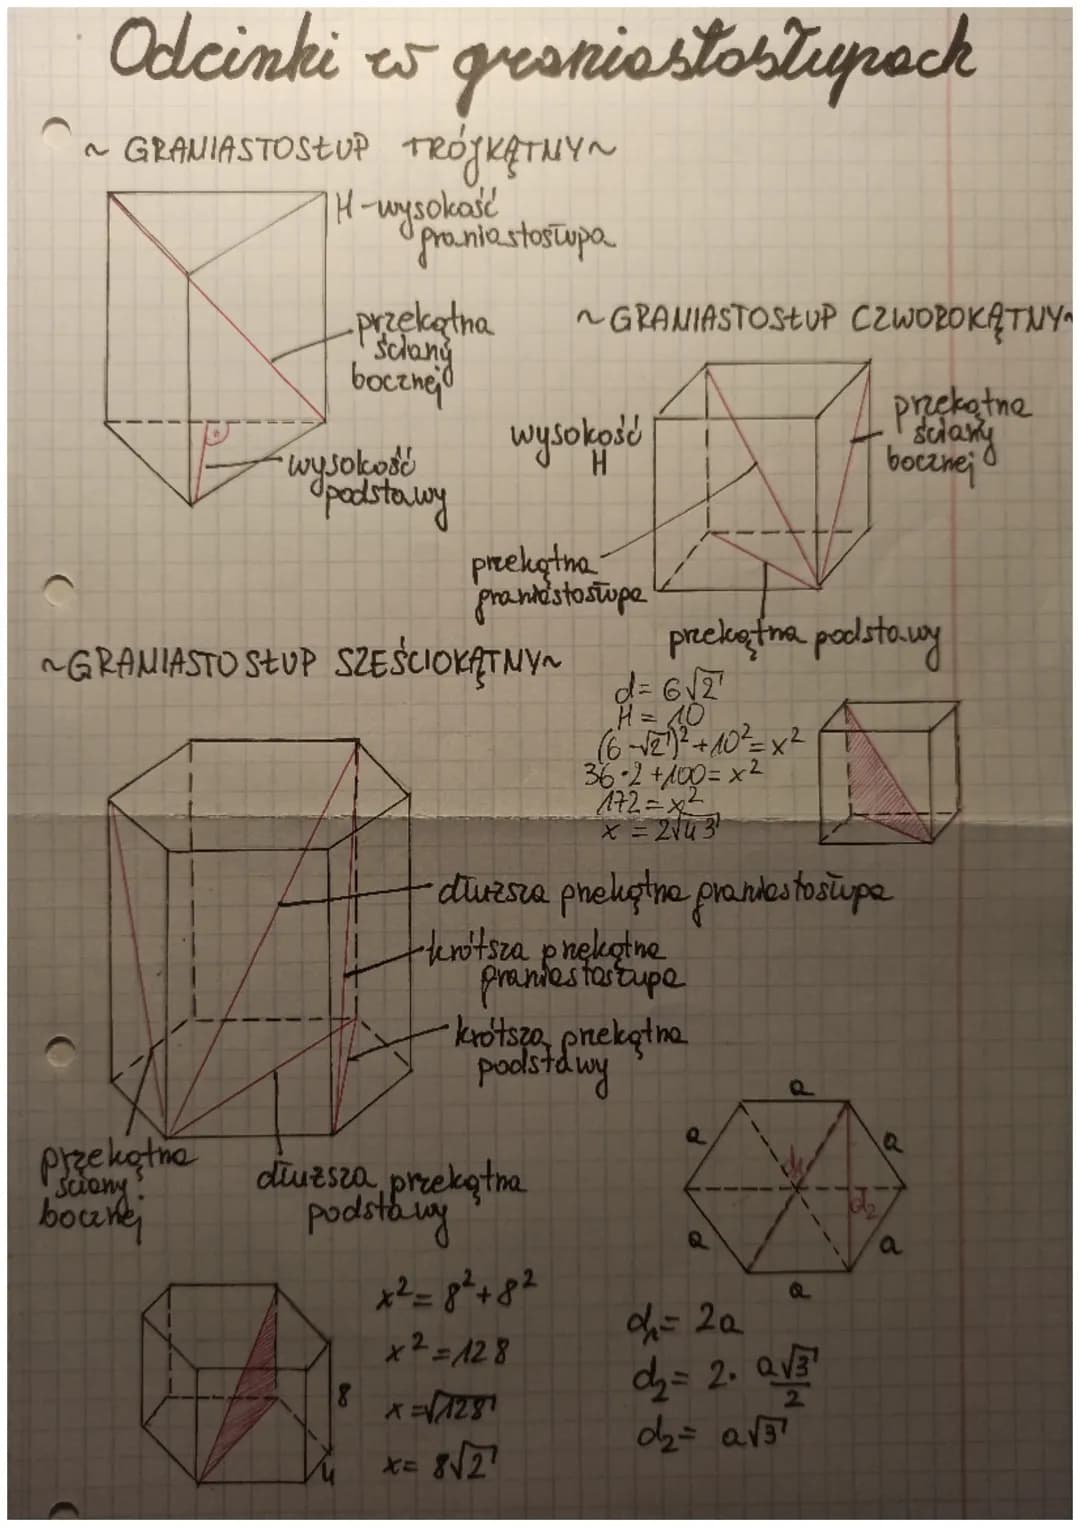 Odcinki w graniastosłupach
~ GRANIASTOSŁUP TRÓJKĄTNY ~
H - wysokość
graniastosłupa
przekątna
ściany
bocznej
wysokość
podstawy
~ GRANIASTOSŁUP CZWOROKĄTNY ~
wysokość
H
przekątna
ściany
bocznej
przekątna
graniastosłupa
przekątna podstawy
~GRANIASTOSŁUP SZEŚCIOKĄTNY~
d = 6√2
H = 10
(6 · √2)² + 10² = x²
36 · 2 + 100 = x²
172 = x²
x = 2√43
dłuższa przekątna graniastosłupa
krótsza przekątna
graniastosłupa
krótsza przekątna
podstawy
przekątna
ściany
bocznej
dłuższa przekątna
podstawy
a
a
a
d₁
d₂
a
a
a
x² = 8² + 8²
x² = 128
x = √128
x = 8√2
8
4
d₁ = 2a
d₂ = 2 · a√3/2
d₂ = a√3